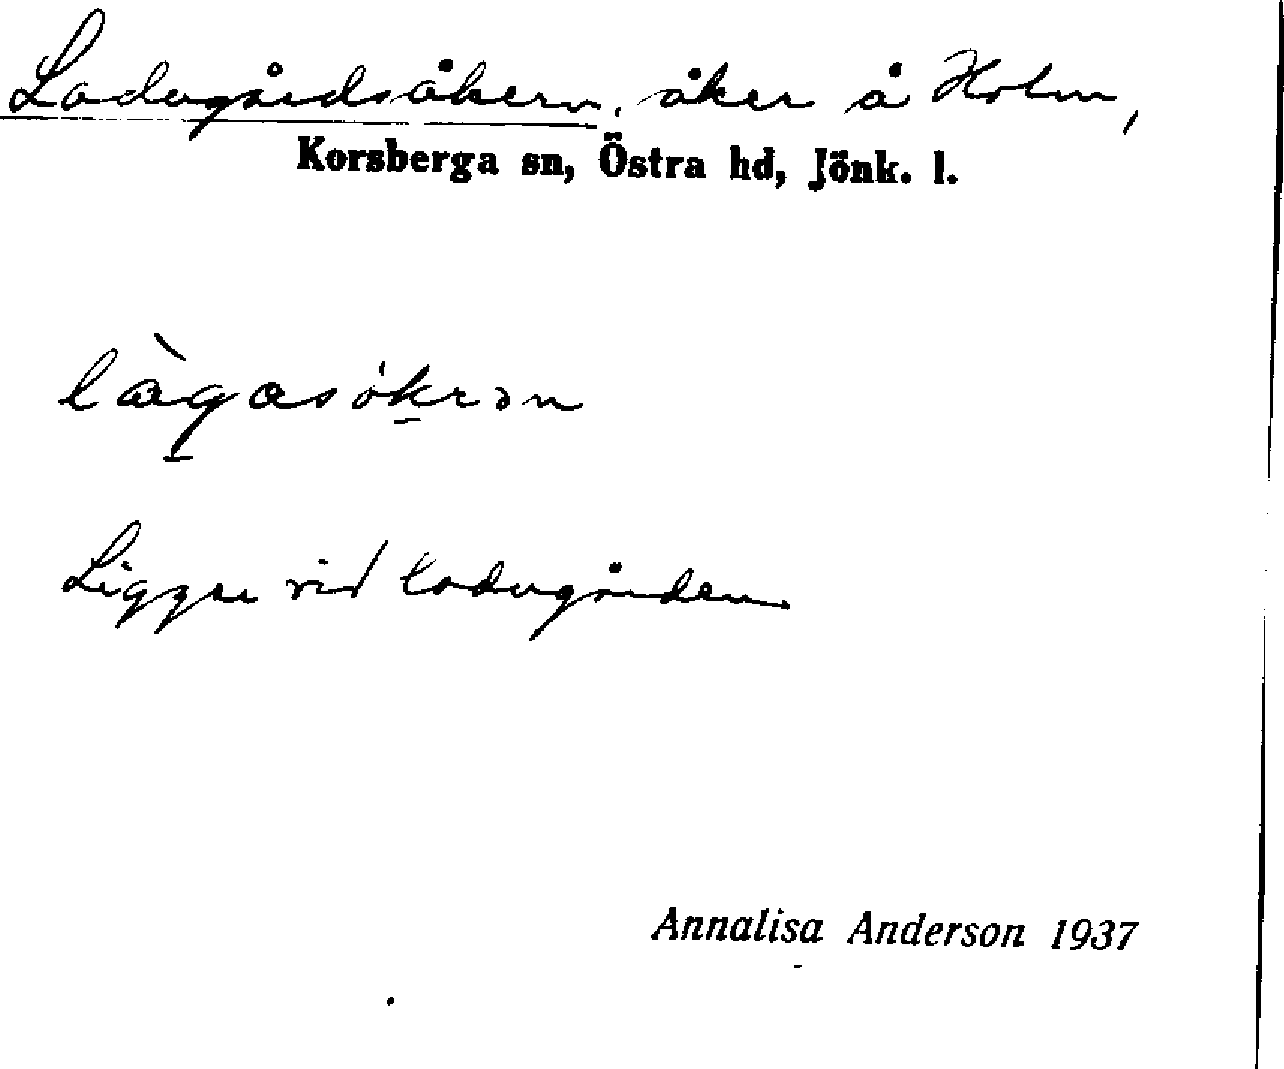 Ladugårdsåkern, åker å Holm,
Korsberga sn, Östra hd, Jönk. l.
làgasåkrən
Ligger vid ladugården.
Annalisa Anderson 1937